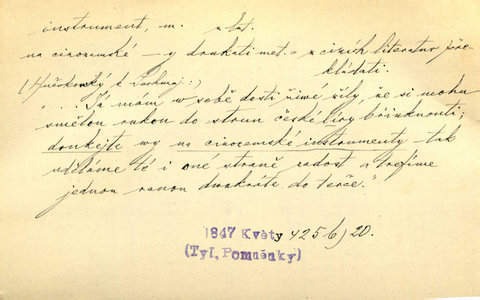 instrument, m. z lat.
na cizozemské – y drnkati met. = z cizích literatur pře-
kládati.
"... Já mám w sobě dosti žiwé síly, že si mohu
smělou rukou do strun české liry břinknouti;
drnkejte wy na cizozemské instrumenty – tak
uděláme té i oné straně radost a trefíme
jednou ranou dwakráte do terče."
1847 Květy 425 b) 20.
(Tyl, Pomněnky)